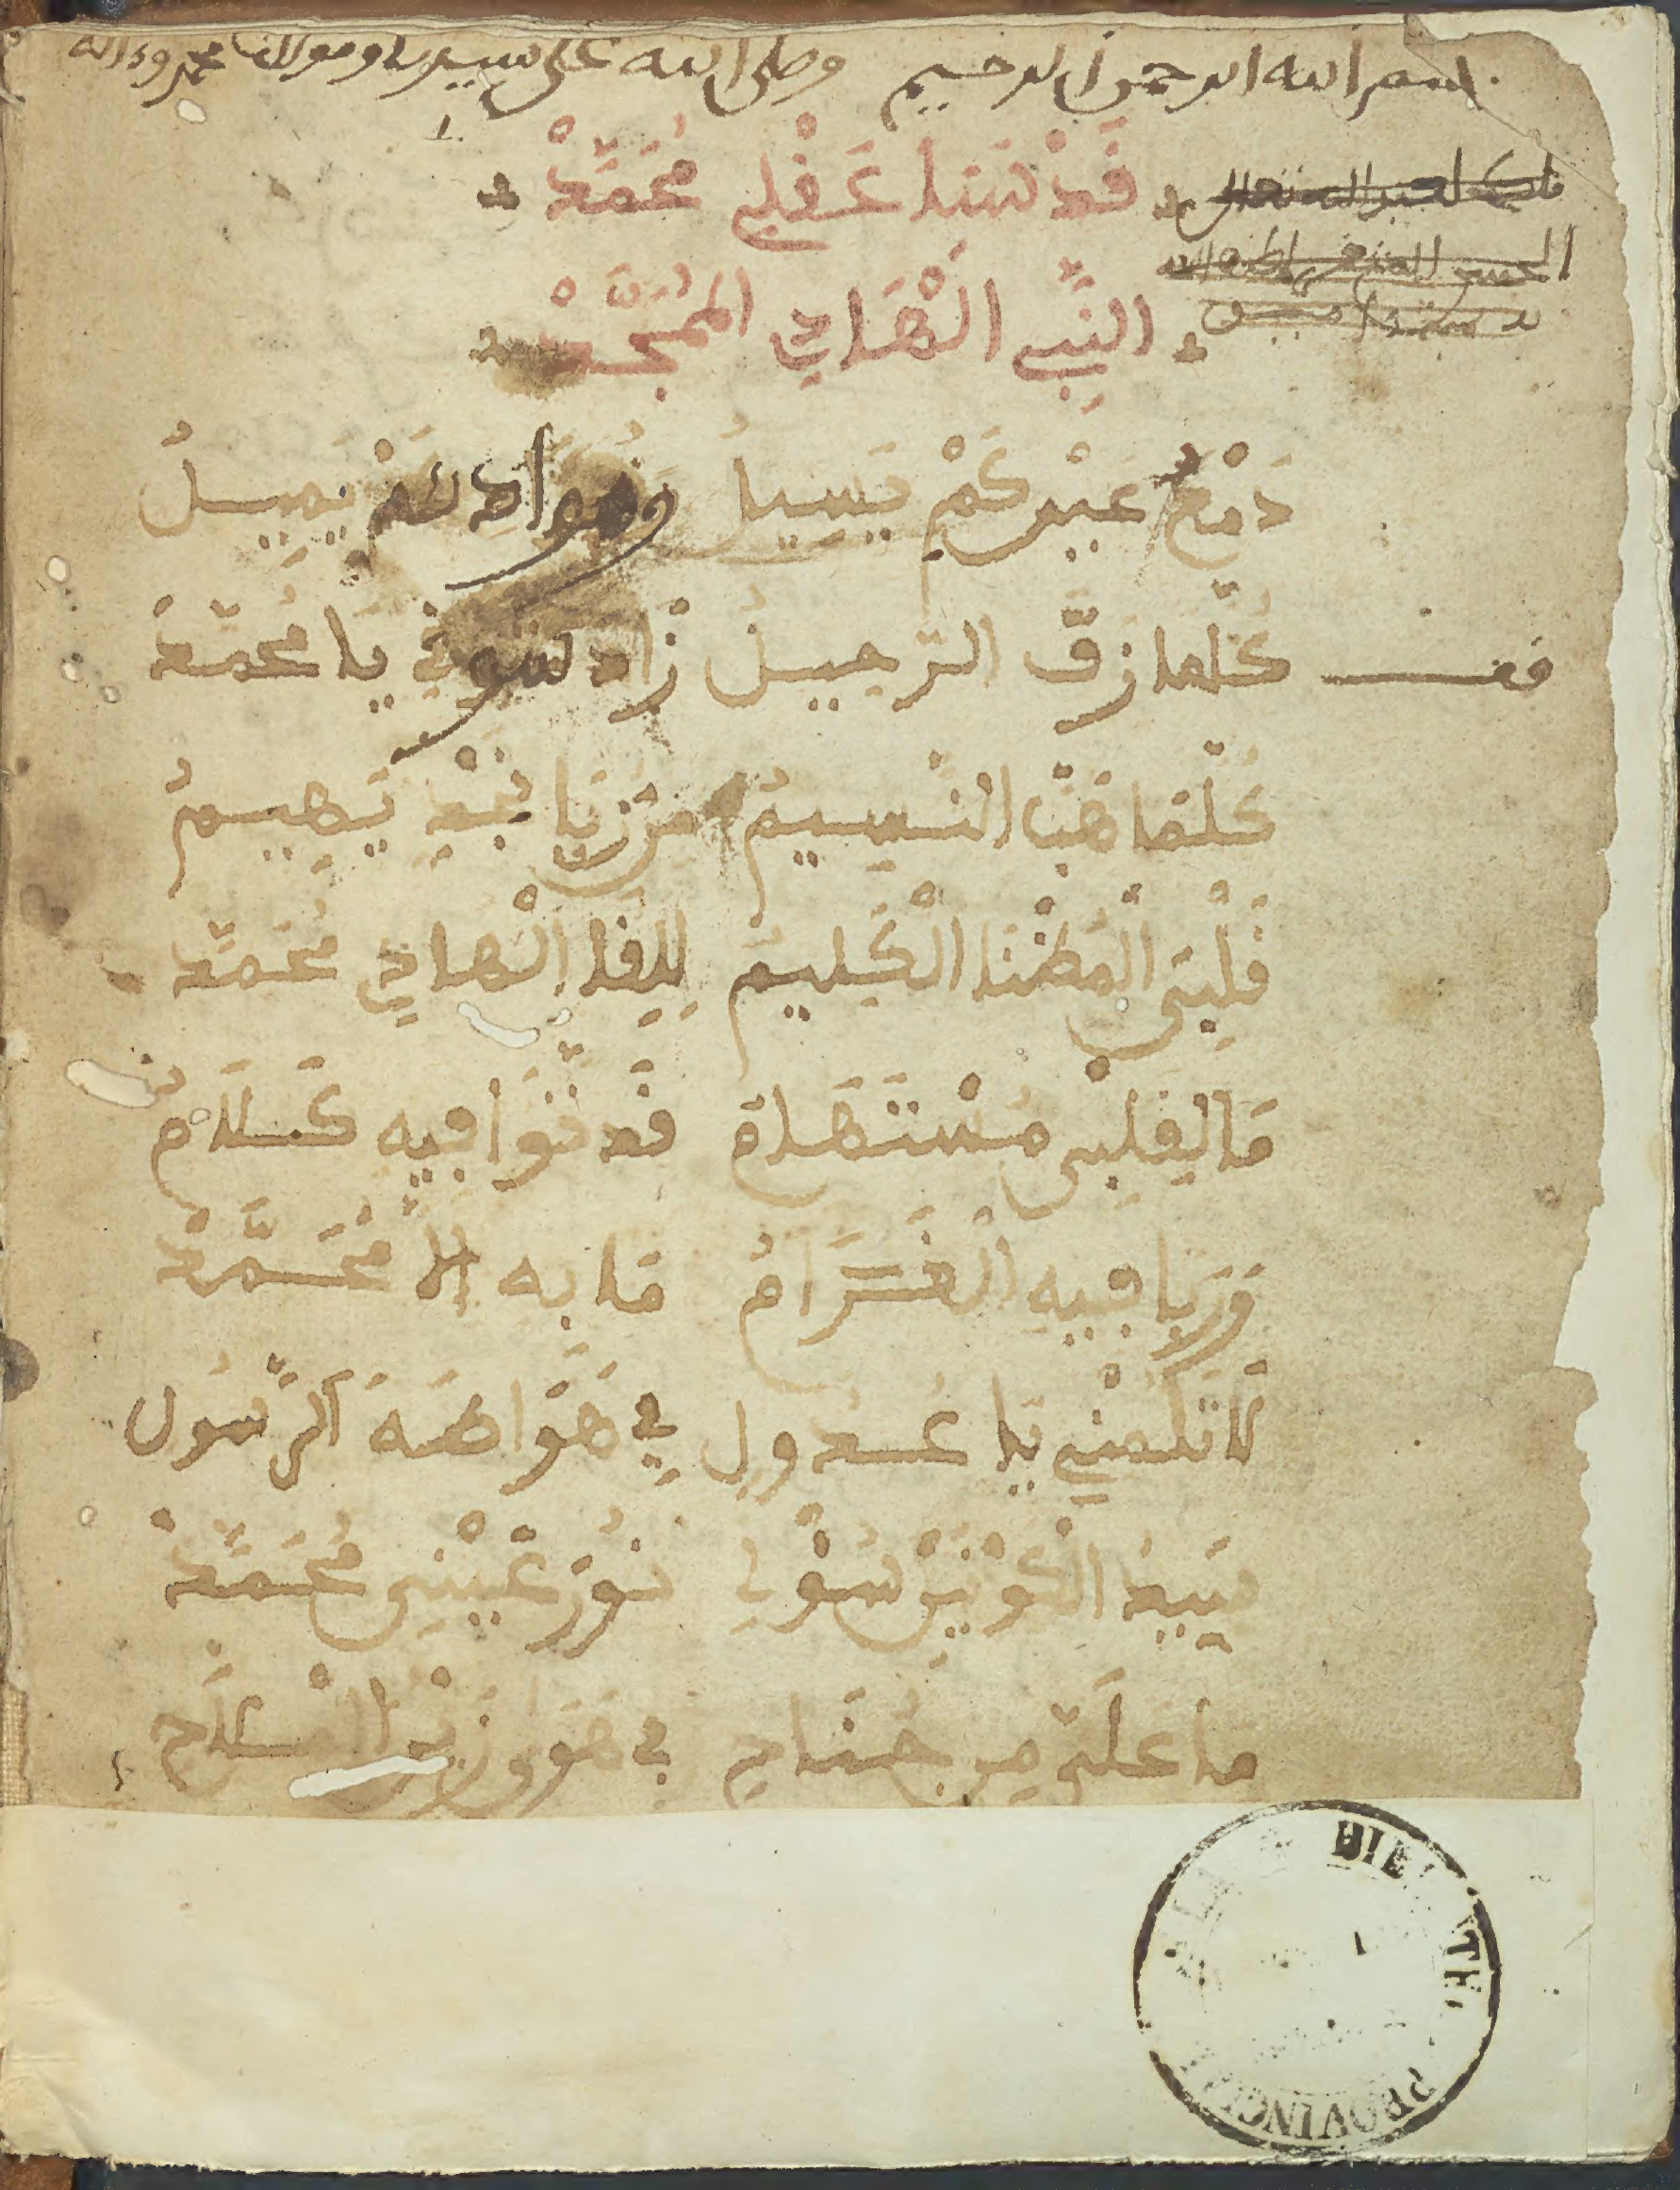 بسم الله الرحمن الرحيم وصلى الله على سيدنا ومولانا محمد وءاله
قَدْ سَبَا عَقْلِي مُحَمَّدْ
النَّبِي الْهَادِي الْمُمَجَّدْ
دَمْعُ عَيْنِي كَمْ يَسِيلُ وَفُؤَادِي كَمْ يَمِيلُ
كُلَّمَا زقّ الرّحيلُ زَاد شوقي يَا مُحمّدْ
كُلّمَا هَبَّ النَّسِيمُ مِن رُبَا نَجْدٍ يَهِيمُ
قَلْبِيَ الْمُضْنَا الْكَلِيمُ لِلِقَا الْهادِي مُحَمَّد
مَا لِقَلْبِي مُسْتَهَام قَد ثَوَا فِيهِ كَلَام
وَرَبَا فِيهِ الْغَرَامُ مَا بِهِ إلَّا مُحَمَّدْ
لَا تَلُمْنِي يَا عَدُولِ فِي هَوَا طَهَ الرَّسُول
سَيِّدَ الْكَوْنَيْنِ سُولِي نُورَ عَيْنِي مُحَمَّدْ
مَا عَلَيَّ مِن جُنَاح فِي هَوَى زَيْنِ الْمِلَاح
BIB
PROVINC